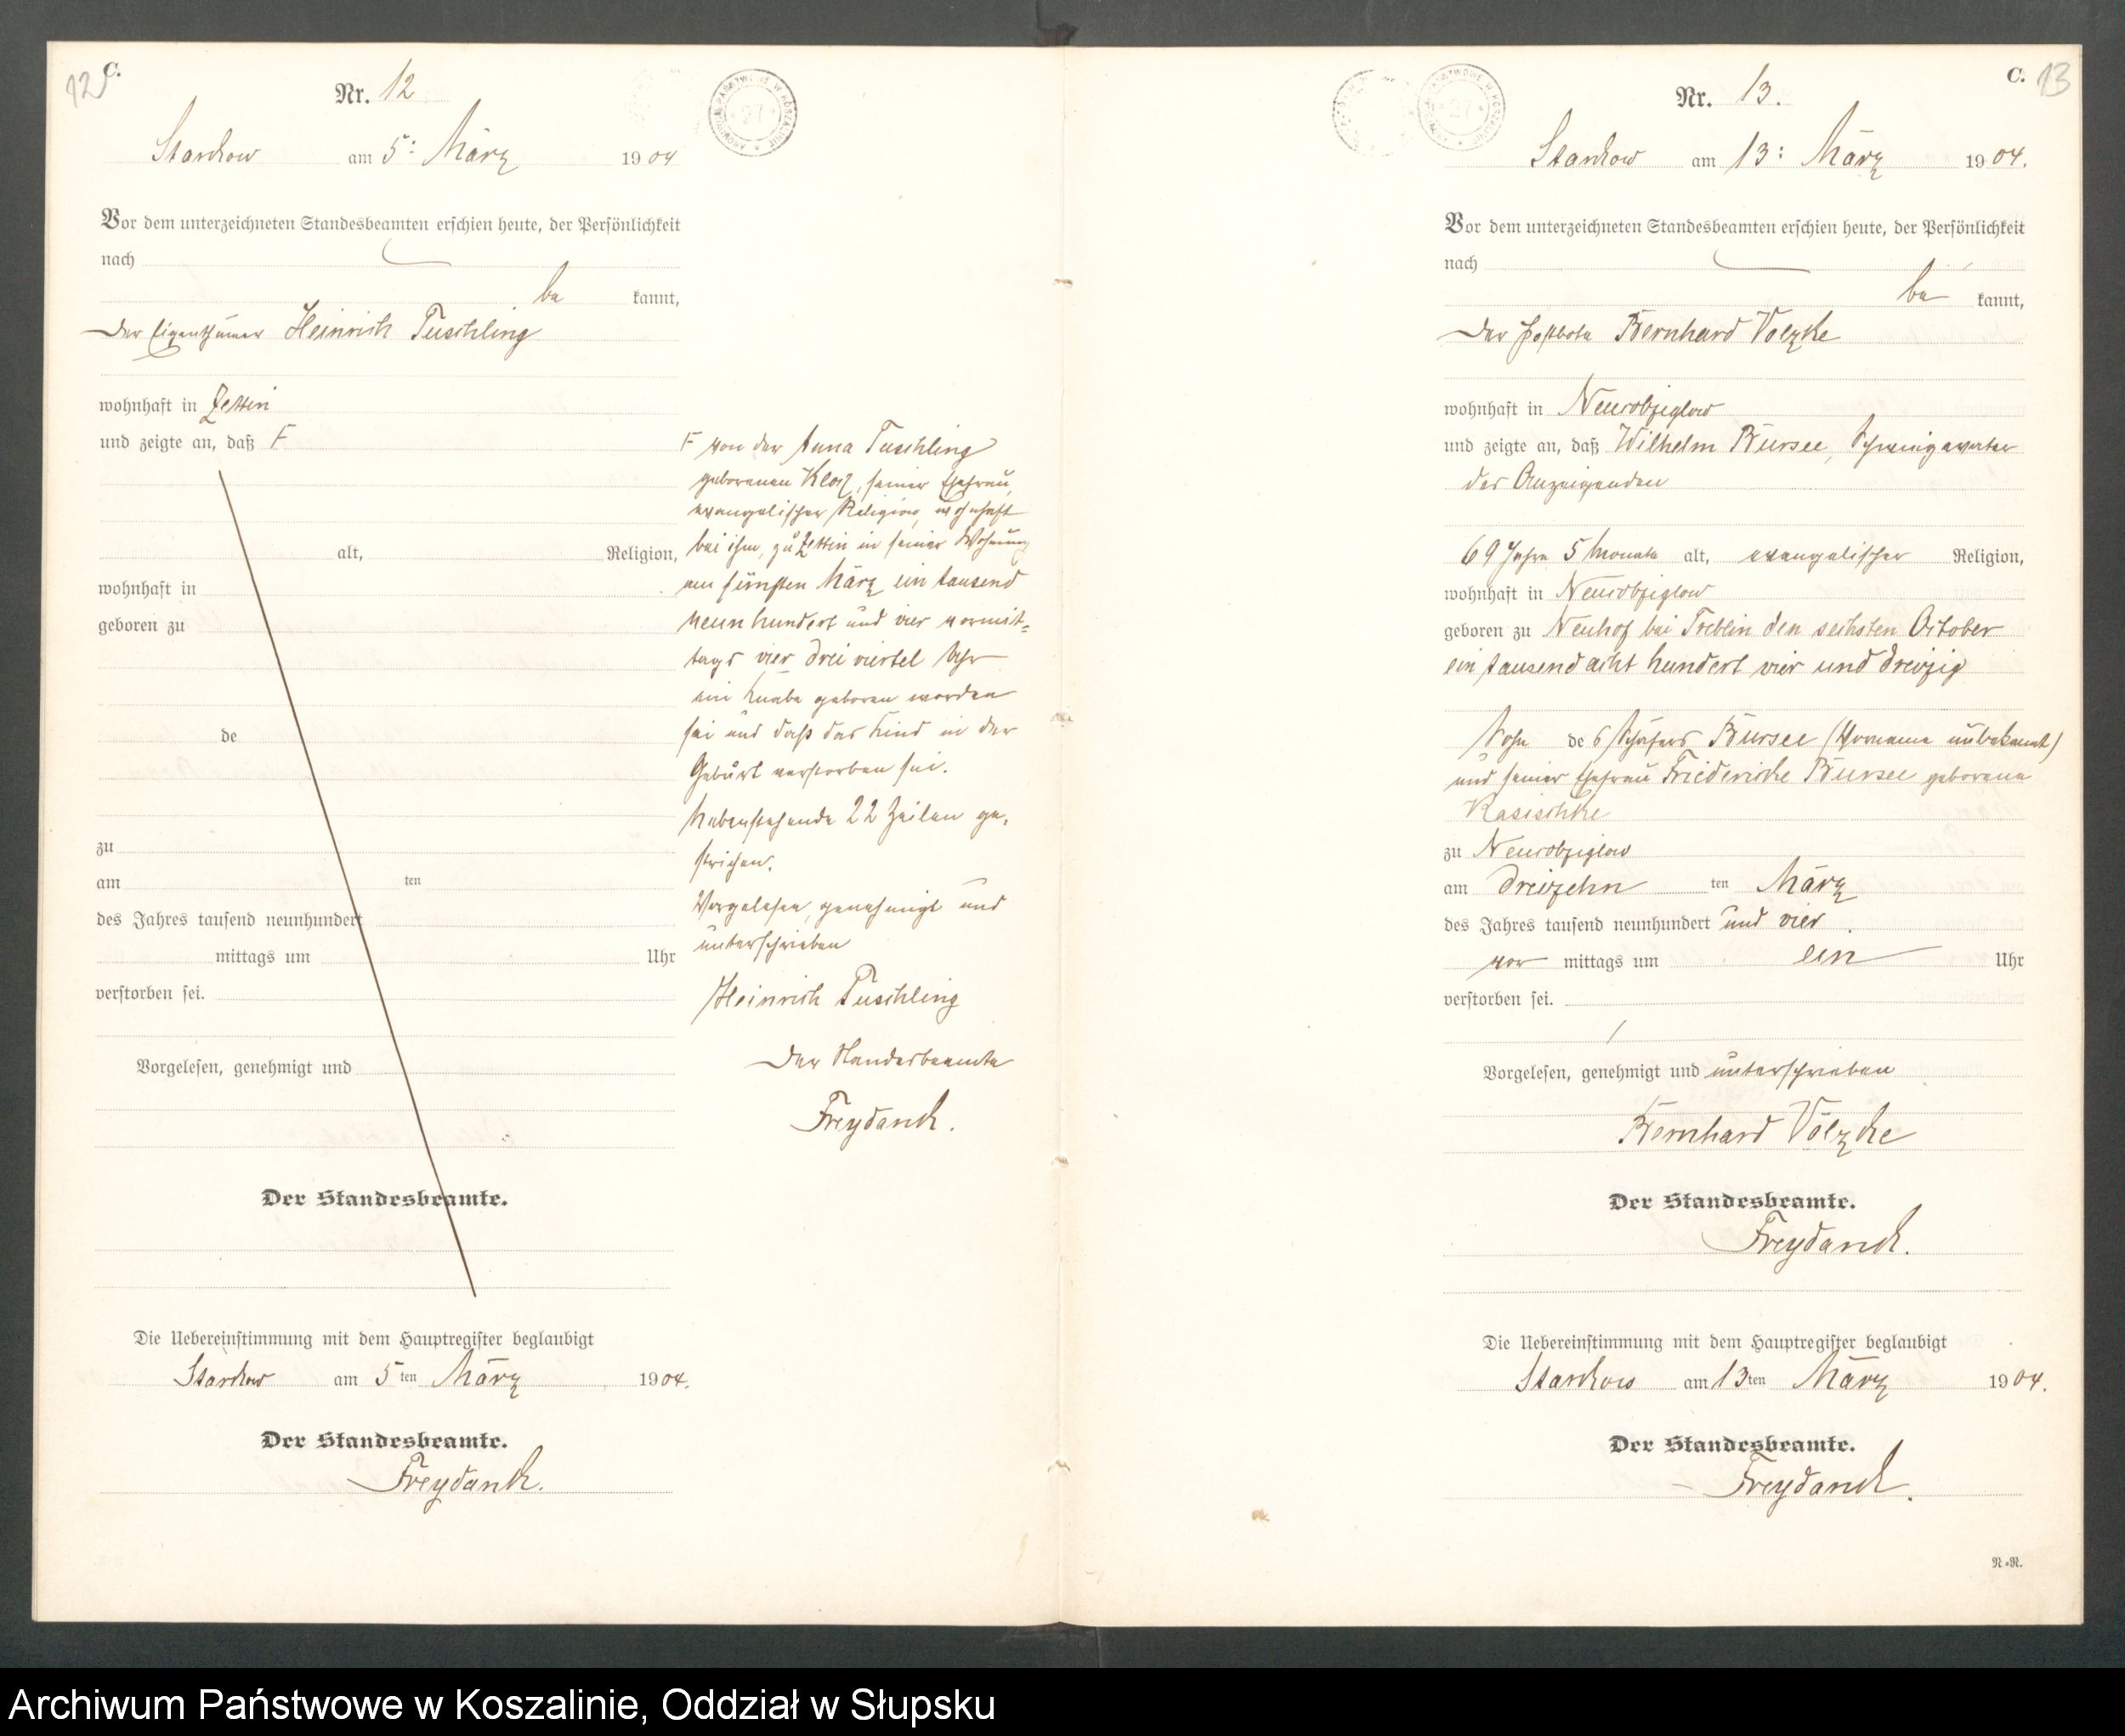 12
C.
Nr. 12
Starckow am 5: März 1904
Vor dem unterzeichneten Standesbeamten erschien heute, der Persönlichkeit
nach
be kannt,
der Eigenthümer Heinrich Tuschling
wohnhaft in Zettin
und zeigte an, daß F
alt, Religion,
wohnhaft in
geboren zu
de
zu
am ten
des Jahres tausend neunhundert
mittags um Uhr
verstorben sei.
Vorgelesen, genehmigt und
Der Standesbeamte.
F von der Anna Tuschling
geborenen Klotz, seiner Ehefrau,
evangelischer Religion, wohnhaft
bei ihm, zu Zettin in seiner Wohnung
am fünften März ein tausend
neun hundert und vier vormit=
tags vier drei viertel Uhr
ein Knabe geboren worden
sei und daß das Kind in der
Geburt verstorben sei.
Nebenstehende 22 Zeilen ge-
strichen.
Vorgelesen, genehmigt und
unterschrieben
Heinrich Tuschling
Der Standesbeamte
Freydanck.
Die Uebereinstimmung mit dem Hauptregister beglaubigt
Starckow am 5ten März 1904.
Der Standesbeamte.
Freydanck.
C. 13
Nr. 13.
Starckow am 13: März 1904.
Vor dem unterzeichneten Standesbeamten erschien heute, der Persönlichkeit
nach
be kannt,
der Postbote Bernhard Völzcke
wohnhaft in Neurobjiglow
und zeigte an, daß Wilhelm Bursee, Schwiegervater
des Anzeigenden
69 Jahre 5 Monate alt, evangelischer Religion,
wohnhaft in Neurobjiglow
geboren zu Neuhof bei Treblin den sechsten October
ein tausend acht hundert vier und dreizig
Sohn des Schäfers Bursee (Vorname unbekannt)
und seiner Ehefrau Friedericke Bursee geborene
Kasischke
zu Neurobjiglow
am dreizehn ten März
des Jahres tausend neunhundert und vier
vor mittags um ein Uhr
verstorben sei.
Vorgelesen, genehmigt und unterschrieben
Bernhard Völzcke
Der Standesbeamte.
Freydanck.
Die Uebereinstimmung mit dem Hauptregister beglaubigt
Starckow am 13ten März 1904.
Der Standesbeamte.
Freydanck.
N.=R.
Archiwum Państwowe w Koszalinie, Oddział w Słupsku